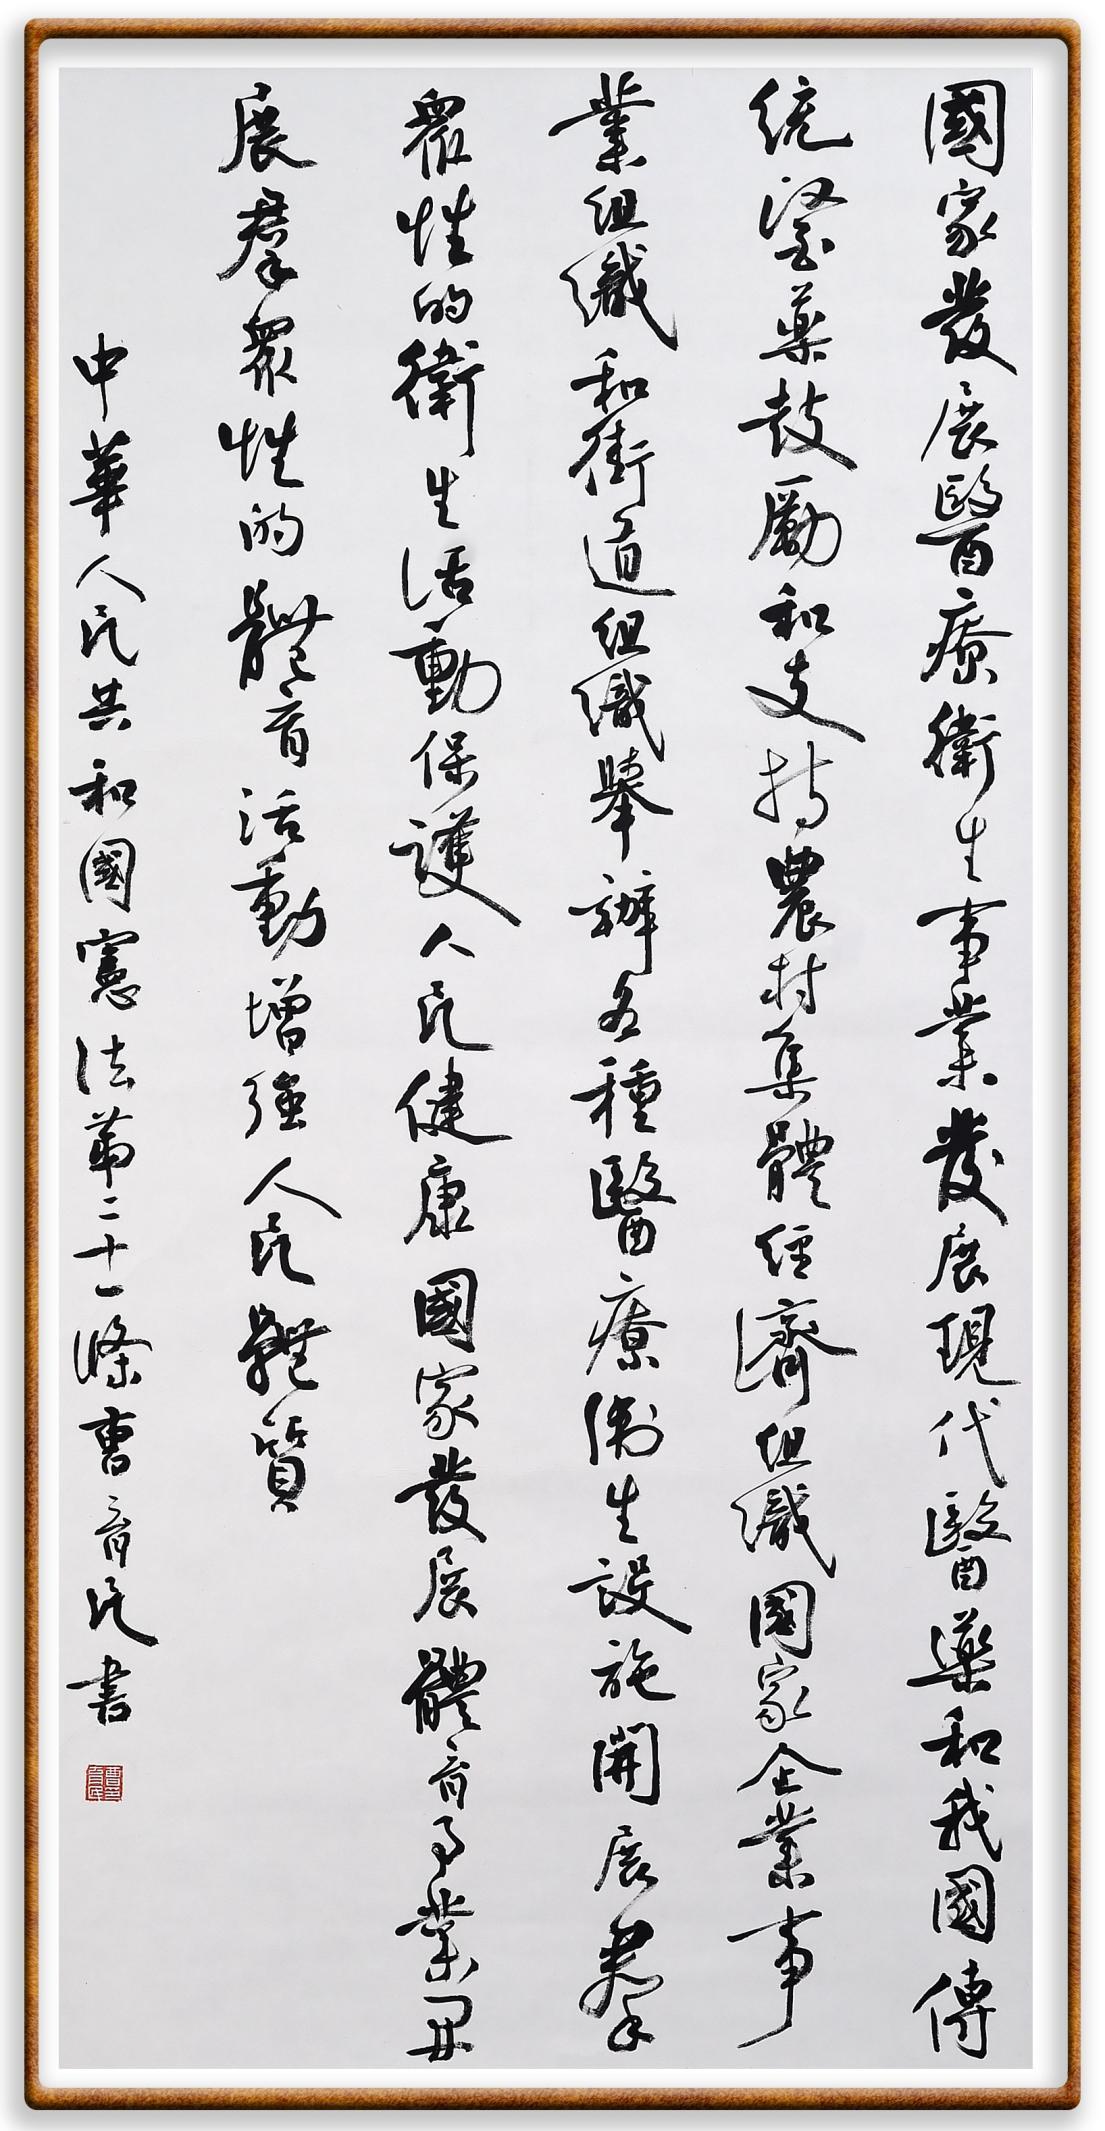 國家發展醫療衛生事業發展現代醫藥和我國傳
統醫藥鼓勵和支持農村集體經濟組織國家企業事
業組織和街道組織舉辦各種醫療衛生設施開展羣
衆性的衛生活動保護人民健康國家發展體育事業開
展羣衆性的體育活動增強人民體質
中華人民共和國憲法第二十一條曹育民書
曹育民